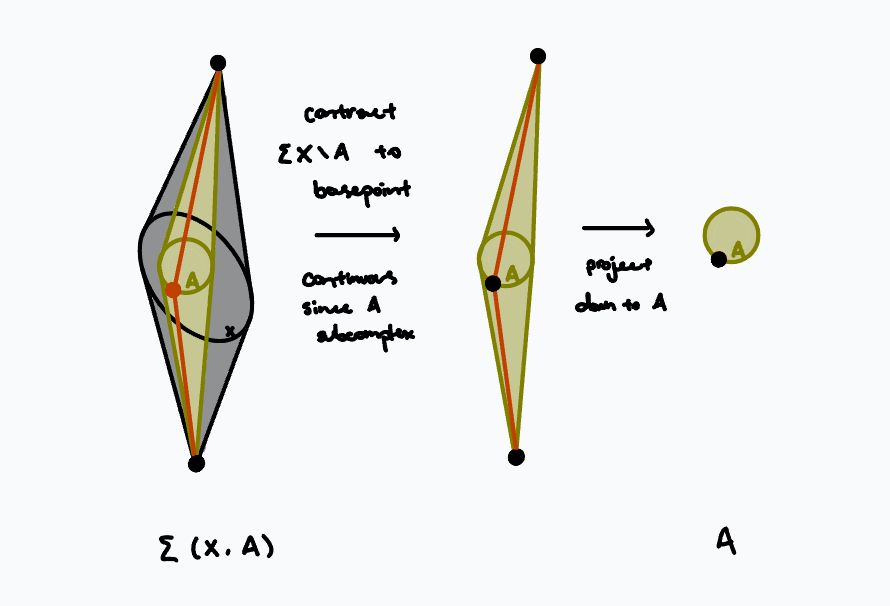 contract
ΣX\A to
basepoint
continuous
since A
subcomplex
A
x
Σ (X, A)
A
project
down to A
A
A